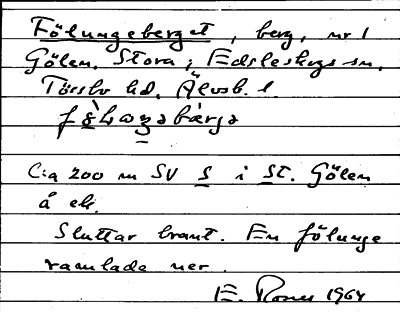 Fölungeberget, berg, nr 1
Gölen, Stora, Edsleskogs sn,
Tössbo hd, Älvsb. l.
C:a 200 m SV S i St. Gölen
å ek.
Sluttar brant. En fölunge
ramlade ner.
E. 1964